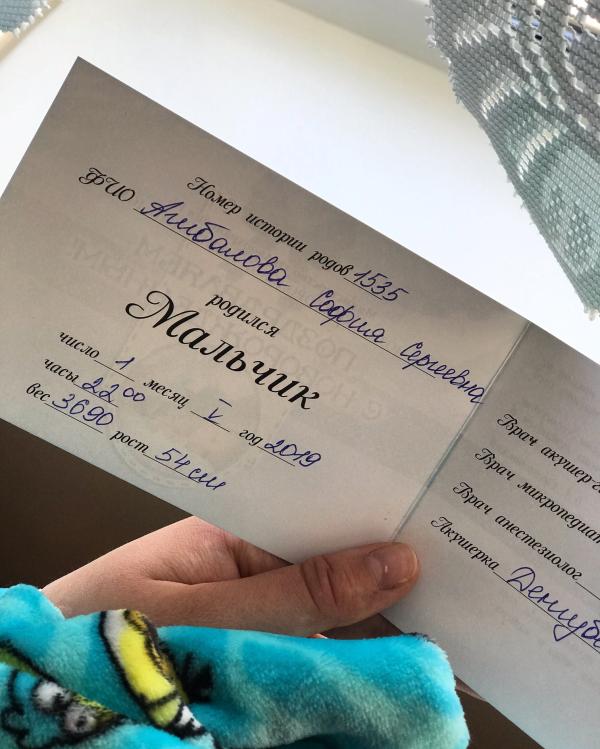 Номер истории родов 1535
ФИО Ашбалова София Сергеевна
родился
Мальчик
число 1 месяц V год 2019
часы 22 00
вес 3690 рост 54 см
Врач акушер-г
Врач микропедиат
Врач анестезиолог
Акушерка